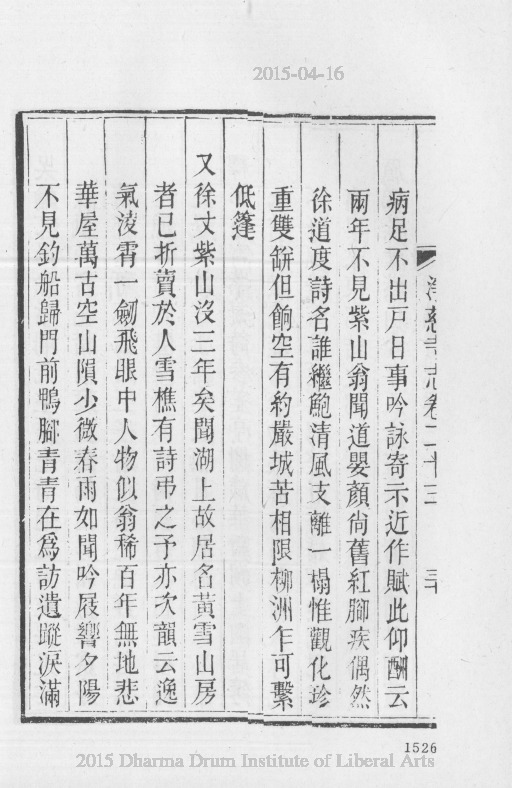 2015-04-16
淨慈寺志卷二十三 三十
病足不出戸日事吟詠寄示近作賦此仰酬云
兩年不見紫山翁聞道嬰顏尙舊紅腳疾偶然
徐道度詩名誰繼鮑清風支離一榻惟觀化珍
重雙缾但餉空有約嚴城苦相限柳洲乍可繫
低篷
又徐丈紫山沒三年矣聞湖上故居名黃雪山房
者已折賣於人雪樵有詩弔之予亦次韻云逸
氣淩霄一劒飛眼中人物似翁稀百年無地悲
華屋萬古空山隕少微春雨如聞吟屐響夕陽
不見釣船歸門前鴨腳青青在爲訪遺蹤淚滿
1526
2015 Dharma Drum Institute of Liberal Arts